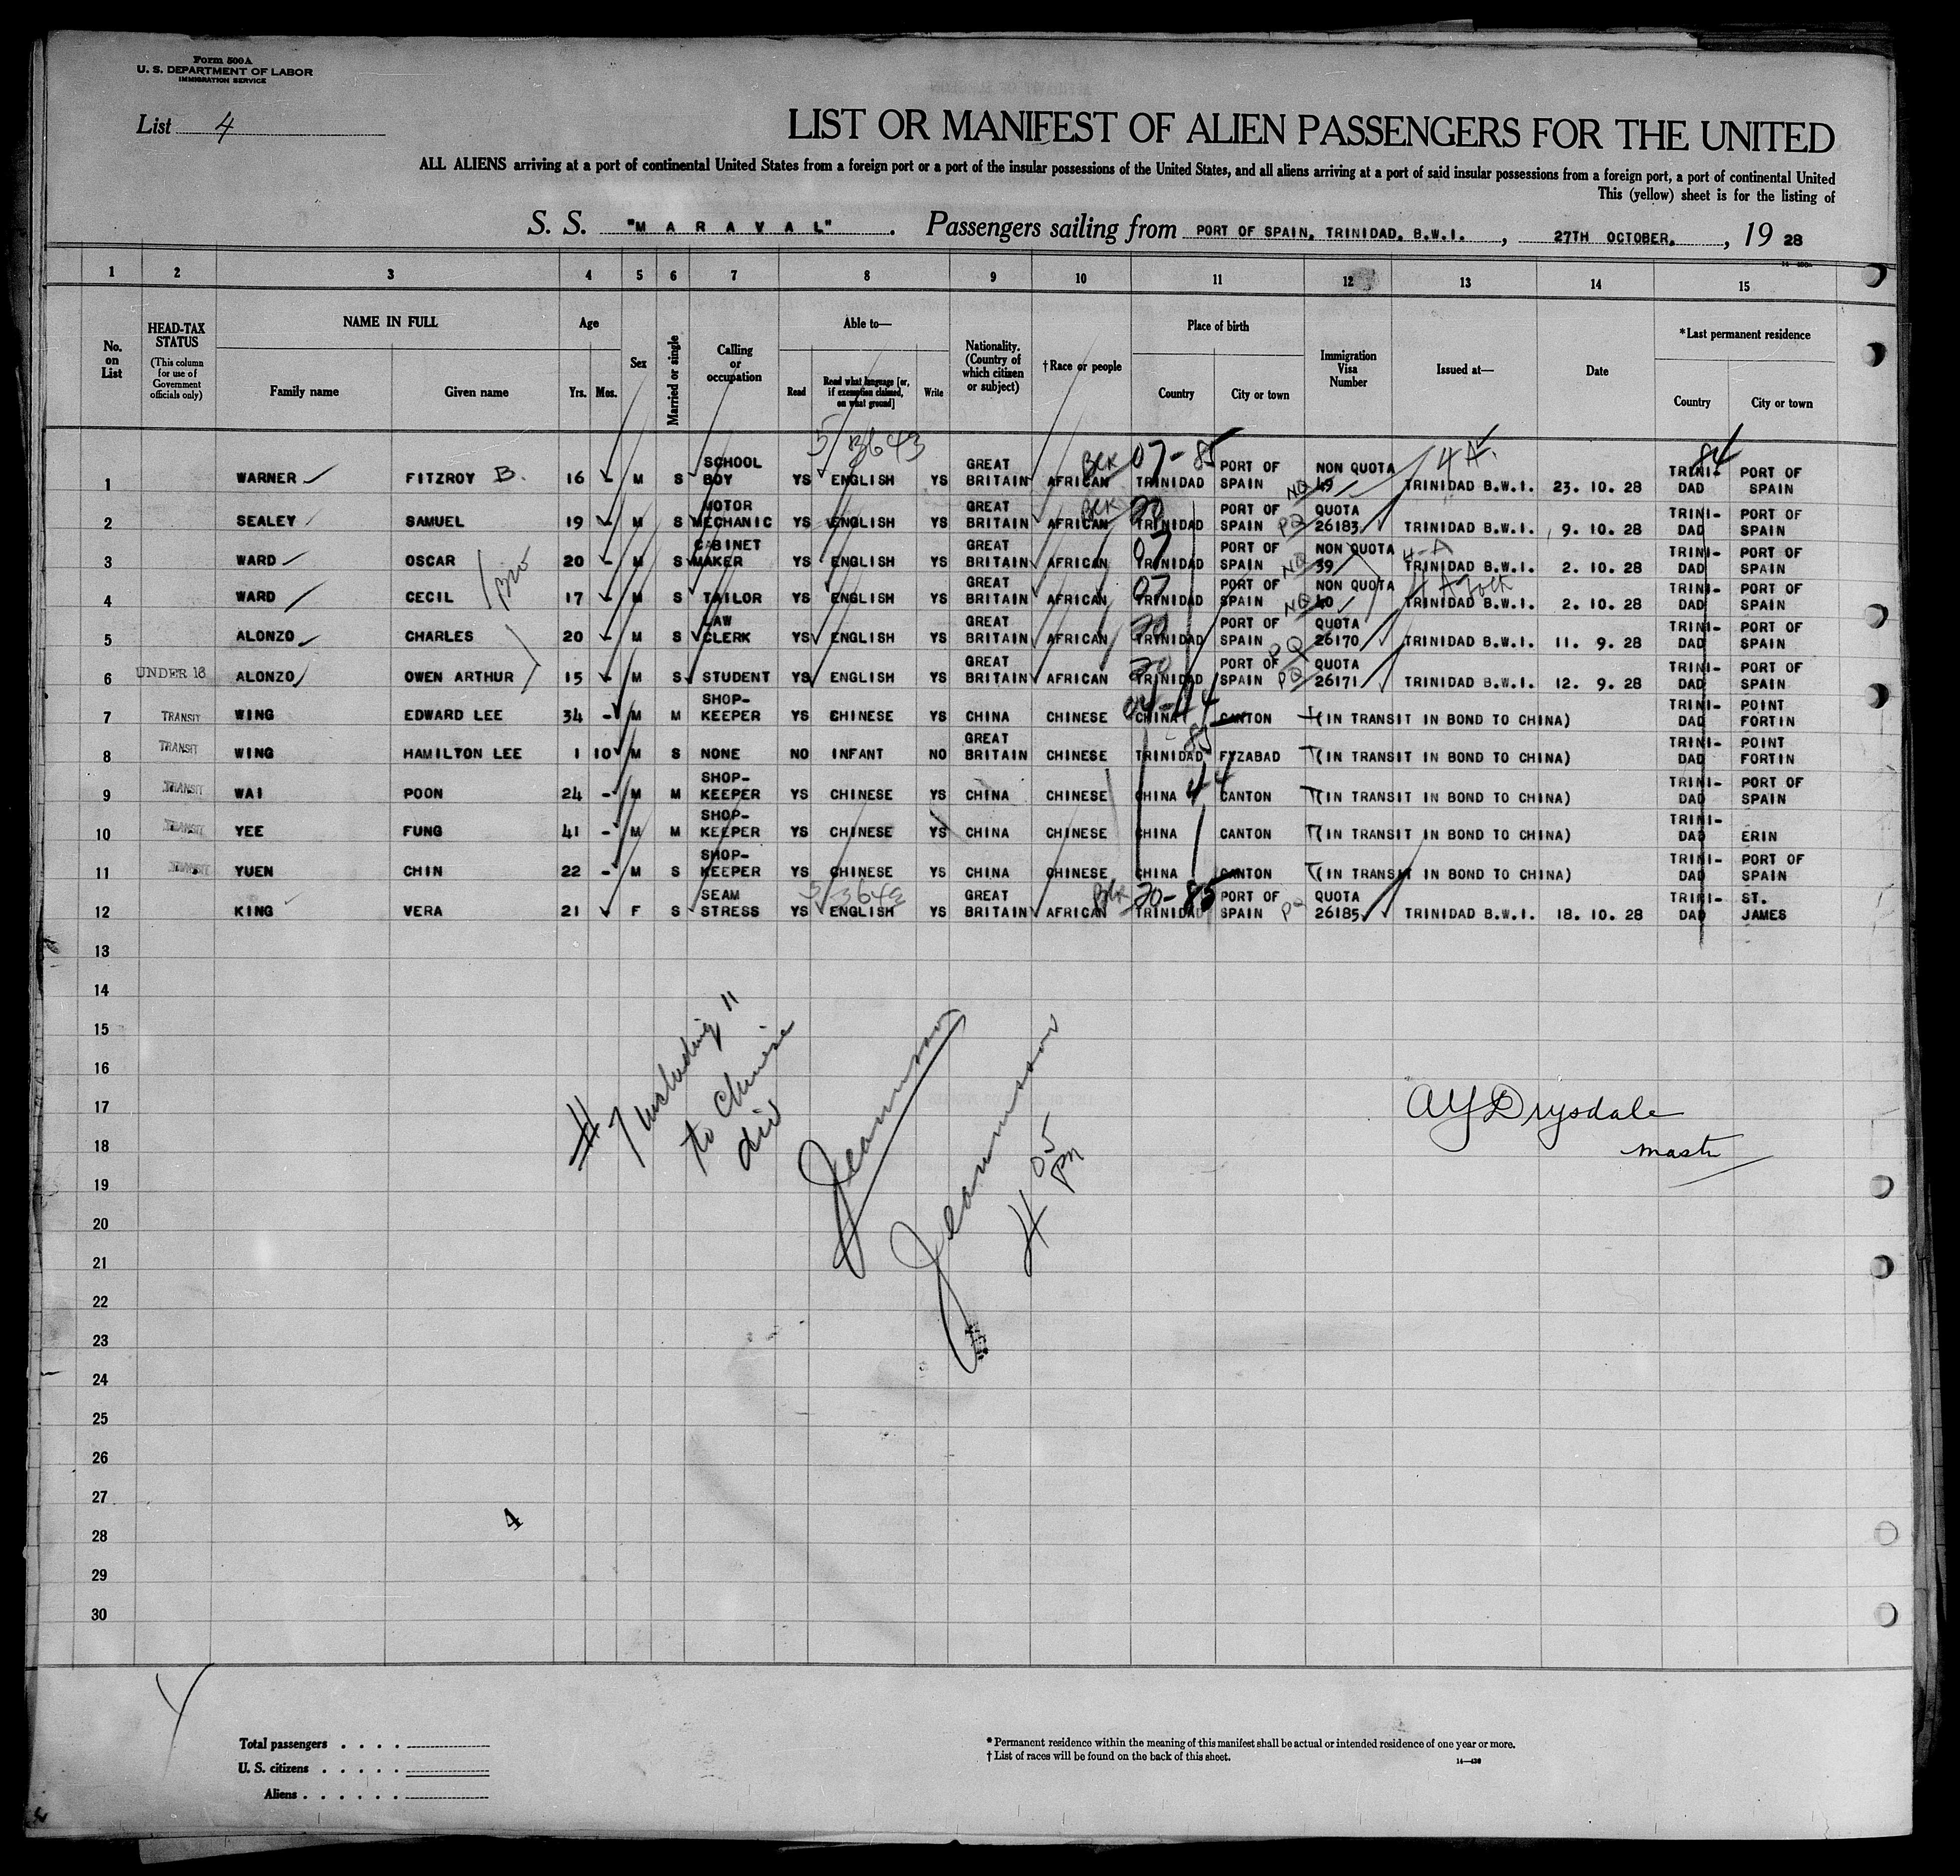 Form 500A
U. S. DEPARTMENT OF LABOR
IMMIGRATION SERVICE
List 4
LIST OR MANIFEST OF ALIEN PASSENGERS FOR THE UNITED
ALL ALIENS arriving at a port of continental United States from a foreign port or a port of the insular possessions of the United States, and all aliens arriving at a port of said insular possessions from a foreign port, a port of continental United
This (yellow) sheet is for the listing of
S. S. "MARAVAL". Passengers sailing from PORT OF SPAIN, TRINIDAD, B.W.I., 27TH OCTOBER, 1928
1 2 3 4 5 6 7 8 9 10 11 12 13 14 15
No. on List
HEAD-TAX STATUS (This column for use of Government officials only)
NAME IN FULL
Family name Given name
Age
Yrs. Mos.
Sex
Married or single
Calling or occupation
Able to—
Read Read what language [or, if exemption claimed, on what ground] Write
Nationality. (Country of which citizen or subject)
†Race or people
Place of birth
Country City or town
Immigration Visa Number
Issued at—
Date
*Last permanent residence
Country City or town
5/3643
1 WARNER FITZROY B. 16 - M S SCHOOL BOY YS ENGLISH YS GREAT BRITAIN AFRICAN Blk 07-85 TRINIDAD PORT OF SPAIN NQ NON QUOTA 49 4 A. TRINIDAD B.W.I. 23. 10. 28 84 TRINI-DAD PORT OF SPAIN
2 SEALEY SAMUEL 19 - M S MOTOR MECHANIC YS ENGLISH YS GREAT BRITAIN AFRICAN Blk 20 TRINIDAD PORT OF SPAIN PQ QUOTA 26183 TRINIDAD B.W.I. 9. 10. 28 TRINI-DAD PORT OF SPAIN
3 WARD OSCAR 20 - M S CABINET MAKER YS ENGLISH YS GREAT BRITAIN AFRICAN 07 TRINIDAD PORT OF SPAIN NQ NON QUOTA 39 4-A TRINIDAD B.W.I. 2. 10. 28 TRINI-DAD PORT OF SPAIN
bro
4 WARD CECIL 17 - M S TAILOR YS ENGLISH YS GREAT BRITAIN AFRICAN 07 TRINIDAD PORT OF SPAIN NQ NON QUOTA 40 4 A TRINIDAD B.W.I. 2. 10. 28 TRINI-DAD PORT OF SPAIN
5 ALONZO CHARLES 20 - M S LAW CLERK YS ENGLISH YS GREAT BRITAIN AFRICAN 20 TRINIDAD PORT OF SPAIN PQ QUOTA 26170 TRINIDAD B.W.I. 11. 9. 28 TRINI-DAD PORT OF SPAIN
6 UNDER 16 ALONZO OWEN ARTHUR 15 - M S STUDENT YS ENGLISH YS GREAT BRITAIN AFRICAN 20 TRINIDAD PORT OF SPAIN PQ QUOTA 26171 TRINIDAD B.W.I. 12. 9. 28 TRINI-DAD PORT OF SPAIN
7 TRANSIT WING EDWARD LEE 34 - M M SHOP-KEEPER YS CHINESE YS CHINA CHINESE 04-44 CHINA CANTON (IN TRANSIT IN BOND TO CHINA) TRINI-DAD POINT FORTIN
8 TRANSIT WING HAMILTON LEE 1 10 M S NONE NO INFANT NO GREAT BRITAIN CHINESE 85 TRINIDAD FYZABAD T(IN TRANSIT IN BOND TO CHINA) TRINI-DAD POINT FORTIN
9 TRANSIT WAI POON 24 - M M SHOP-KEEPER YS CHINESE YS CHINA CHINESE CHINA 44 CANTON T(IN TRANSIT IN BOND TO CHINA) TRINI-DAD PORT OF SPAIN
10 TRANSIT YEE FUNG 41 - M M SHOP-KEEPER YS CHINESE YS CHINA CHINESE CHINA CANTON T(IN TRANSIT IN BOND TO CHINA) TRINI-DAD ERIN
11 TRANSIT YUEN CHIN 22 - M S SHOP-KEEPER YS CHINESE YS CHINA CHINESE CHINA CANTON T(IN TRANSIT IN BOND TO CHINA) TRINI-DAD PORT OF SPAIN
5/3643
12 KING VERA 21 F S SEAM STRESS YS ENGLISH YS GREAT BRITAIN AFRICAN Blk 20-85 TRINIDAD PORT OF SPAIN PQ QUOTA 26185 TRINIDAD B.W.I. 18. 10. 28 TRINI-DAD ST. JAMES
13
14
15
16
17
18
19
20
21
22
23
24
25
26
27
28
29
30
# 7 including 11
to Chinese
div
4 05
pm
AY Drysdale
4
Total passengers . . . .
U. S. citizens . . . . .
Aliens . . . . . .
*Permanent residence within the meaning of this manifest shall be actual or intended residence of one year or more.
†List of races will be found on the back of this sheet.
14—430